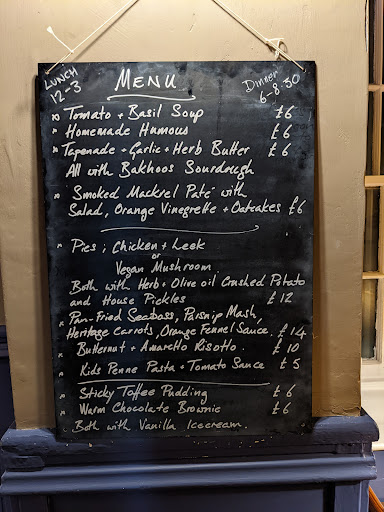 LUNCH
12-3
MENU
Dinner
6-8.30
Tomato + Basil Soup £6
Homemade Humous £6
Tapenade + Garlic + Herb Butter £6
All with Bakhoos Sourdough
Smoked Mackrel Paté with
Salad, Orange Vinegrette + Oatcakes £6
Pies ; Chicken + Leek
or
Vegan Mushroom
Both with Herb + Olive oil Crushed Potato
and House Pickles £12
Pan-Fried Seabass, Parsnip Mash,
Heritage Carrots, Orange Fennel Sauce. £14
Butternut + Amaretto Risotto £10
Kids Penne Pasta + Tomato Sauce £5
Sticky Toffee Pudding £6
Warm Chocolate Brownie £6
Both with Vanilla Icecream.